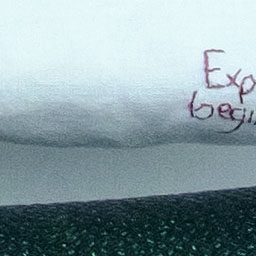 Exp
begin